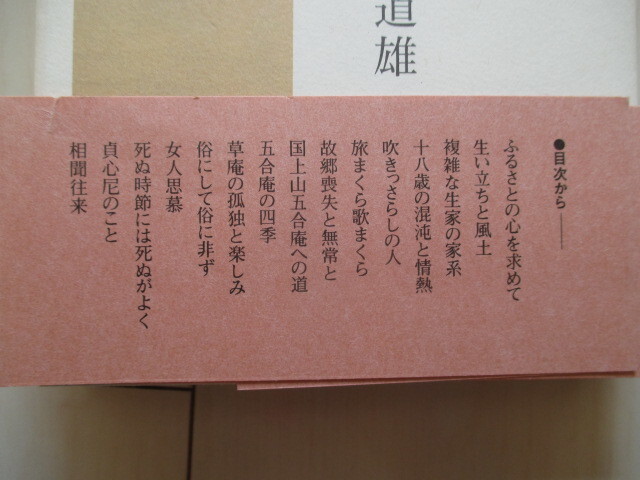 道雄
●目次から——
ふるさとの心を求めて
生い立ちと風土
複雑な生家の家系
十八歳の混沌と情熱
吹きっさらしの人
旅まくら歌まくら
故郷喪失と無常と
国上山五合庵への道
五合庵の四季
草庵の孤独と楽しみ
俗にして俗に非ず
女人思慕
死ぬ時節には死ぬがよく
貞心尼のこと
相聞往来